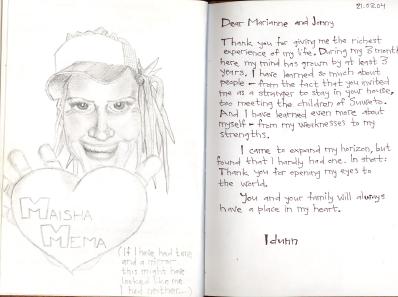 MAISHA
MEMA
(If I have had time
and a mirror
this might have
looked like me
I had neither...)
21.03.04
Dear Marianne and Jenny
Thank you for giving me the richest
experience of my life. During my 3 months
here, my mind has grown by at least 3
years. I have learned so much about
people - from the fact that you invited
me as a stranger to stay in your house,
too meeting the children of Suweto.
And I have learned even more about
myself - from my weaknesses to my
strengths.
I came to expand my horizon, but
found that I hardly had one. In short:
Thank you for opening my eyes to
the world.
You and your family will always
have a place in my heart.
Idunn